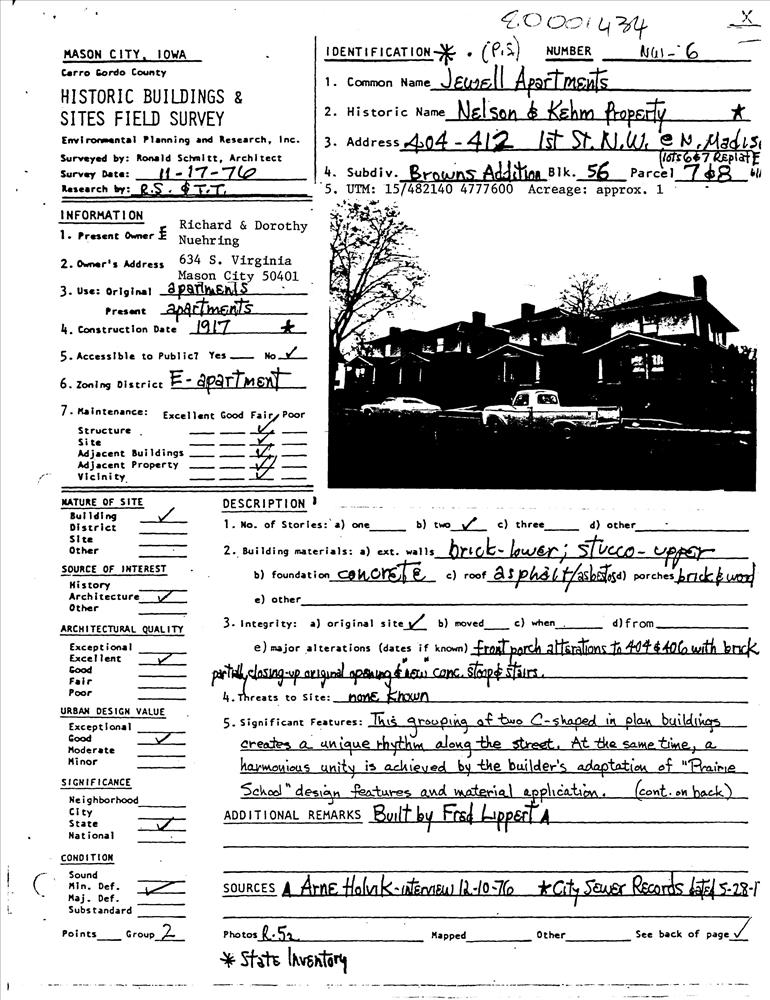 80001434
X
MASON CITY, IOWA
Cerro Gordo County
HISTORIC BUILDINGS &
SITES FIELD SURVEY
Environmental Planning and Research, Inc.
Surveyed by: Ronald Schmitt, Architect
Survey Date: 11-17-76
Research by: R.S. & T.T.
IDENTIFICATION * . (P.S) NUMBER NW-6
1. Common Name Jewell Apartments
2. Historic Name Nelson & Kehm Property *
3. Address 404-412 1st St. N.W. @ N. Madis
(lots 6 & 7 Replat
4. Subdiv. Browns Addition Blk. 56 Parcel 7 & 8
5. UTM: 15/482140 4777600 Acreage: approx. 1
INFORMATION
1. Present Owner Richard & Dorothy
Nuehring
2. Owner's Address 634 S. Virginia
Mason City 50401
3. Use: Original apartments
Present apartments
4. Construction Date 1917 *
5. Accessible to Public? Yes No ✓
6. Zoning District E-apartment
7. Maintenance: Excellent Good Fair Poor
Structure ✓
Site ✓
Adjacent Buildings ✓
Adjacent Property ✓
Vicinity ✓
NATURE OF SITE
Building ✓
District
Site
Other
SOURCE OF INTEREST
History
Architecture ✓
Other
ARCHITECTURAL QUALITY
Exceptional
Excellent ✓
Good
Fair
Poor
URBAN DESIGN VALUE
Exceptional
Good ✓
Moderate
Minor
SIGNIFICANCE
Neighborhood
City
State ✓
National
CONDITION
Sound
Min. Def. ✓
Maj. Def.
Substandard
Points Group 2
DESCRIPTION
1. No. of Stories: a) one b) two ✓ c) three d) other
2. Building materials: a) ext. walls brick-lower; stucco-upper
b) foundation concrete c) roof asphalt/asbestos d) porches brick & wood
e) other
3. Integrity: a) original site ✓ b) moved c) when d) from
e) major alterations (dates if known) front porch alterations to 404 & 406 with brick
partially closing-up original opening & new conc. stoop & stairs.
4. Threats to Site: none known
5. Significant Features: This grouping of two C-shaped in plan buildings
creates a unique rhythm along the street. At the same time, a
harmonious unity is achieved by the builder's adaptation of "Prairie
School" design features and material application. (cont. on back)
ADDITIONAL REMARKS Built by Fred Lippert
SOURCES Arne Holvik-interview 12-10-76 * City Sewer Records dated 5-28-1
Photos R-52 Mapped Other See back of page ✓
* State Inventory